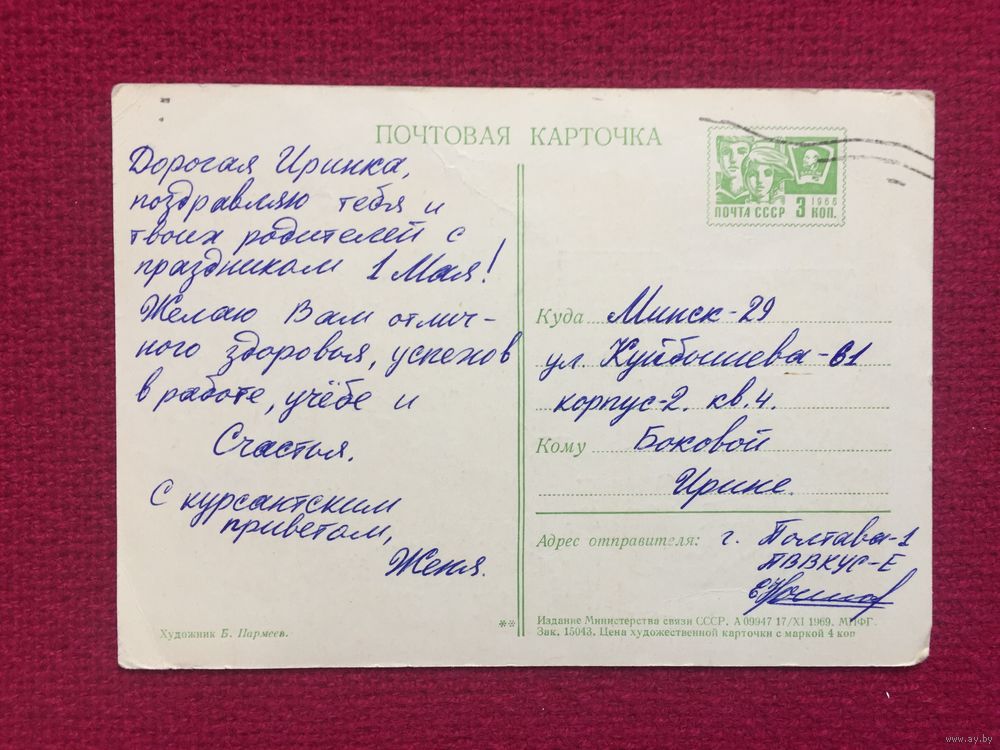 ПОЧТОВАЯ КАРТОЧКА
Дорогая Иринка,
поздравляю тебя и
твоих родителей с
праздником 1 Мая!
Желаю Вам отлич-
ного здоровья, успехов
в работе, учёбе и
Счастья.
С курсантским
приветом,
Женя.
Художник Б. Пармеев.
**
1966
ПОЧТА СССР 3 КОП.
Куда Минск-29
ул. Куйбышева-61
корпус-2. кв.4.
Кому Боковой
Ирине.
Адрес отправителя: г. Полтава-1
ПВВКУС-Е
Издание Министерства связи СССР. А 09947 17/XI 1969. МПФГ.
Зак. 15043. Цена художественной карточки с маркой 4 коп
www.ay.by